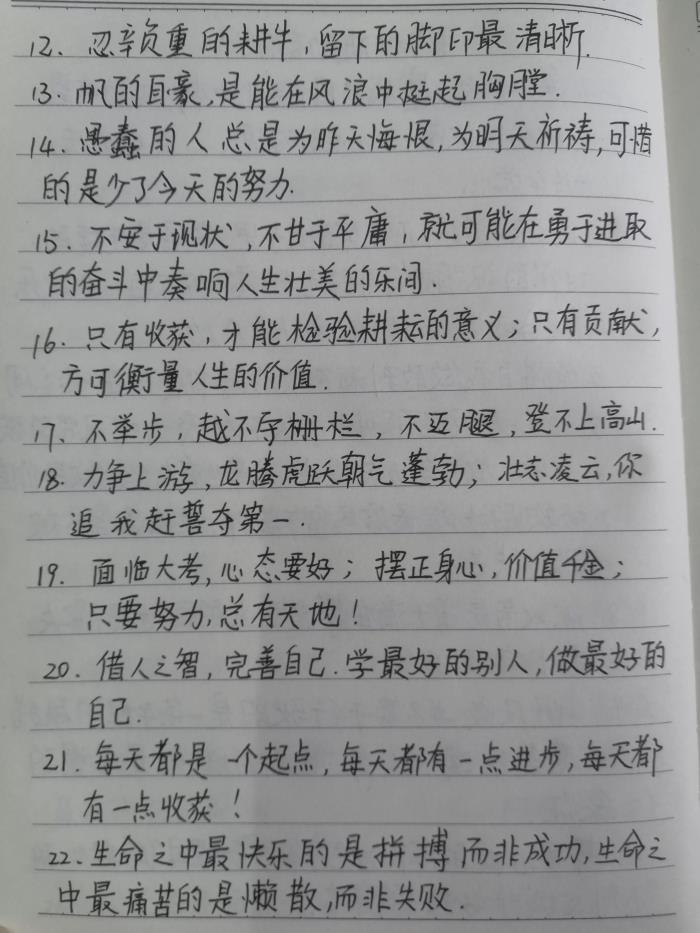 12、忍辛负重的耕牛，留下的脚印最清晰.
13.帆的自豪,是能在风浪中挺起胸膛.
14.愚蠢的人总是为昨天悔恨,为明天祈祷,可惜
的是少了今天的努力.
15.不安于现状,不甘于平庸,就可能在勇于进取
的奋斗中奏响人生壮美的乐间.
16.只有收获,才能检验耕耘的意义;只有贡献,
方可衡量人生的价值.
17、不举步,越不夺栅栏,不迈腿,登不上高山.
18.力争上游,龙腾虎跃朝气蓬勃;壮志凌云,你
追我赶誓夺第一.
19.面临大考,心态要好;摆正身心,价值千金;
只要努力,总有天地!
20.借人之智,完善自己.学最好的别人,做最好的
自己.
21.每天都是一个起点,每天都有一点进步,每天都
有一点收获!
22.生命之中最快乐的是拼搏而非成功,生命之
中最痛苦的是懒散,而非失败.